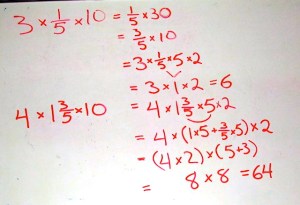 3 × 1/5 × 10 = 1/5 × 30
= 3/5 × 10
= 3 × 1/5 × 5 × 2
= 3 × 1 × 2 = 6
4 × 1 3/5 × 10 = 4 × 1 3/5 × 5 × 2
= 4 × (1×5 + 3/5 × 5) × 2
= (4 × 2) × (5+3)
= 8 × 8 = 64